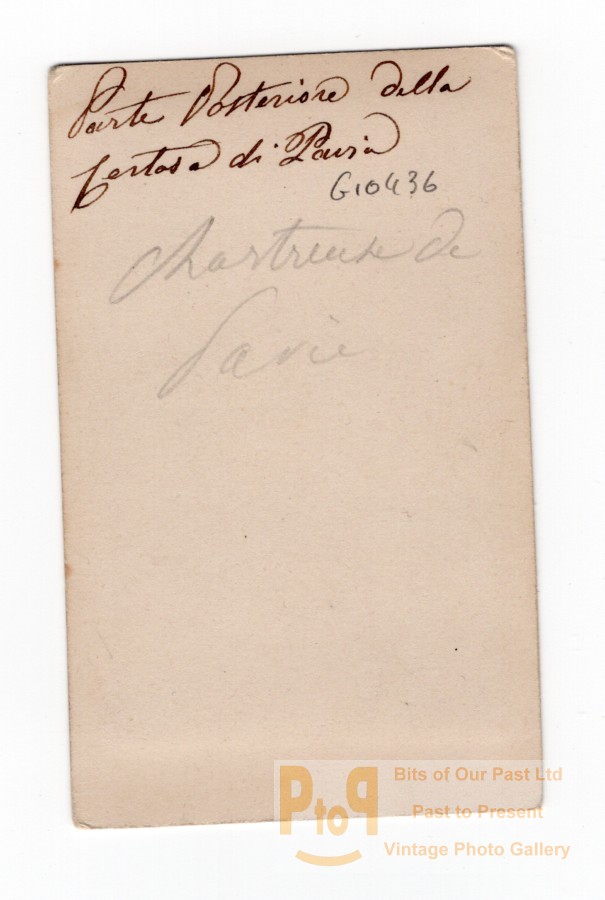 Parte Posteriore della
Certosa di Pavia
G10436
Chartreuse de
Pavie
PtoP
Bits of Our Past Ltd
Past to Present
Vintage Photo Gallery